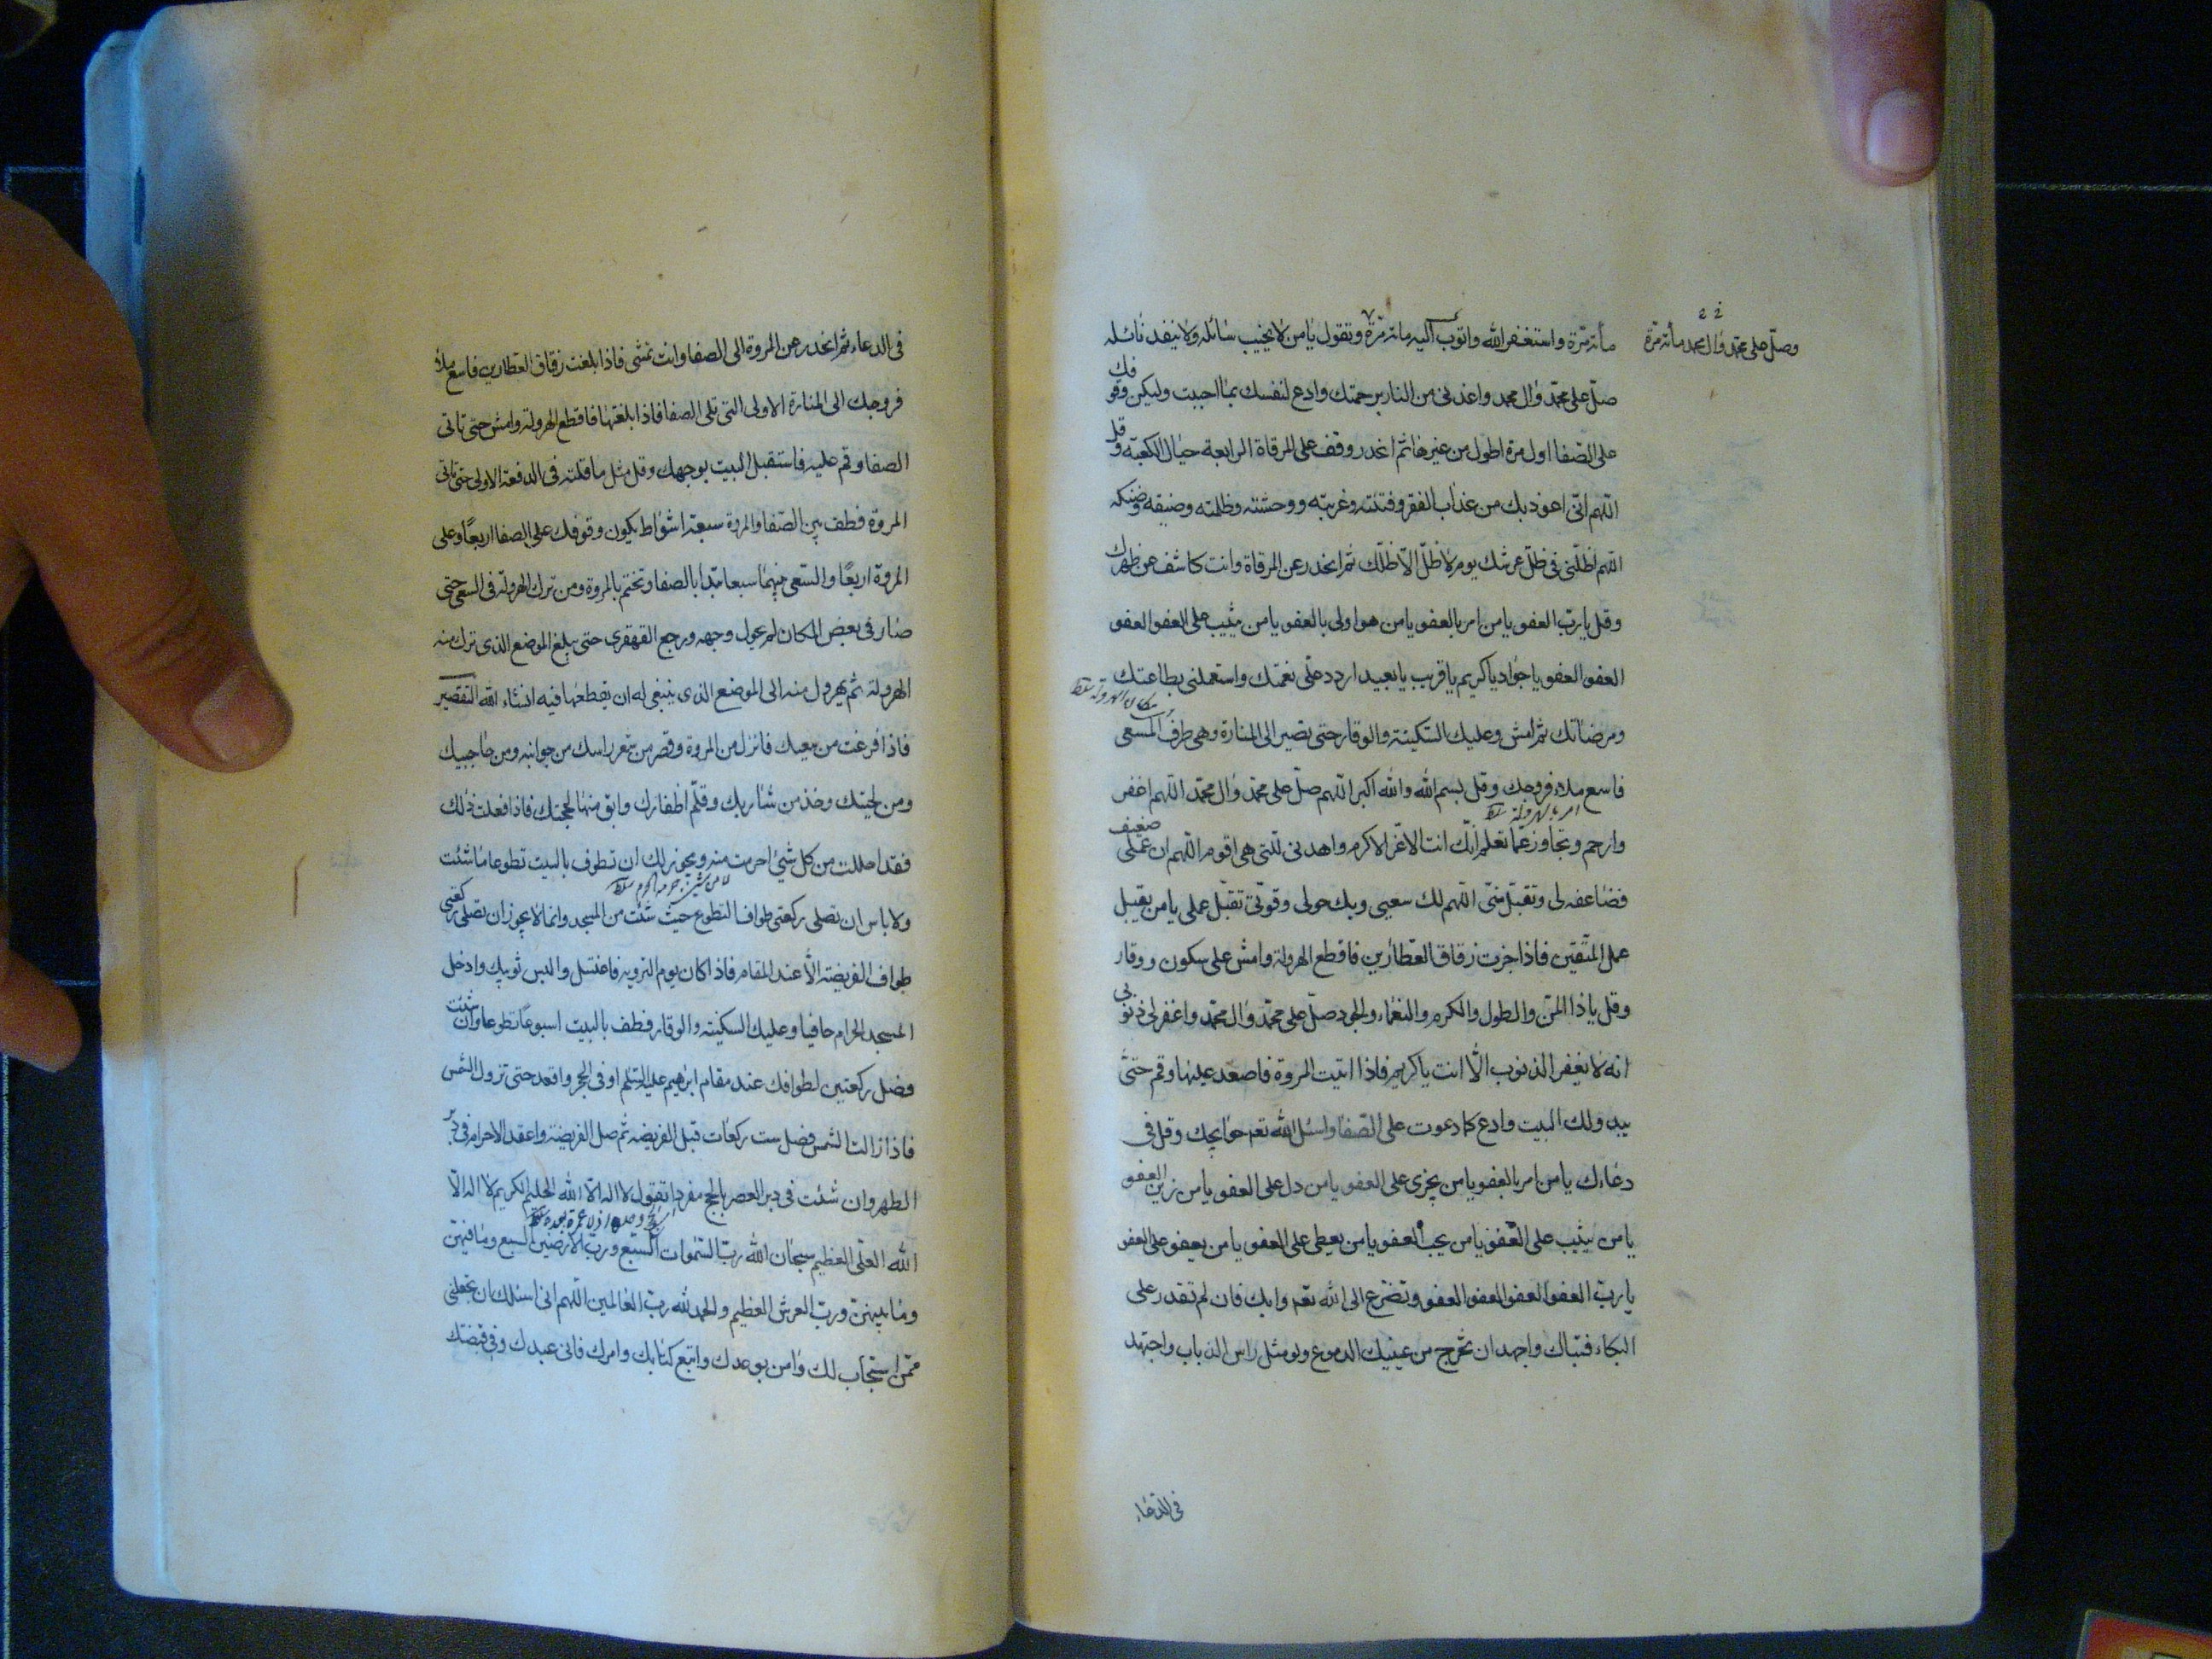 وصلّ على محمّد وال محمد مأته مرّة
مأته مرّة واستغفر الله واتوب اليه مأته مرّة وتقول يا من لا يخيب سائله ولا ينفد نائله
صلّ على محمّد وال محمد واعذنى من النار برحمتك وادع لنفسك بما احببت وليكن وقوفك
على الصّفا اول مرة اطول من غيرها ثم انحدر وقف على المرقاة الرابعة حيال الكعبة وقل
اللهم انّى اعوذ بك من عذاب الفقر وفتنته وغربته ووحشته وظلمته وضيقه وضنكه
اللهم اظلّنى فى ظلّ عرشك يوم لا ظلّ الّا ظلّك ثم انحدر عن المرقاة وانت كاشف عن ظهرك
وقل يا ربّ العفو يا من امر بالعفو يا من هو اولى بالعفو يا من يثيب على العفو العفو
العفو العفو يا جواد يا كريم يا قريب يا بعيد اردد علّى نعمتك واستعملنى بطاعتك
ومرضاتك ثم امش وعليك السّكينة والوقار حتى تصير الى المنارة وهى طرف المسعى
فاسع ملاء فروجك وقل بسم الله والله اكبر اللهم صلّ على محمّد وال محمّد اللهم اغفر
وارحم وتجاوز عما تعلم انّك انت الاعّز الاكرم واهدنى للتى هى اقوم اللهم ان عملى ضعيف
فضاعفه لى وتقبّل منّى اللهم لك سعيى وبك حولى وقوّتى تقبّل عملى يا من يقبل
عمل المتّقين فاذا جزت زقاق العطّارين فاقطع الهرولة وامش على سكون ووقار
وقل يا ذا المنّ والطول والكرم والنعماء والجود صلّ على محمّد وال محمّد واغفر لى ذنوبى
انه لا يغفر الذنوب الّا انت يا كريم فاذا اتيت المروة فاصعد عليها وقم حتى
يبدو لك البيت وادع كما دعوت على الصّفا واسئل الله تعم حوايجك وقل فى
دعائك يا من امر بالعفو يا من يجزى على العفو يا من دل على العفو يا من زين العفو
يا من يثيب على العفو يا من يحبّ العفو يا من يعطى على العفو يا من يعفو على العفو
يا ربّ العفو العفو العفو العفو وتضّرع الى الله تعم وابك فان لم تقدر على
البكاء فتباك واجهد ان تخرج من عينيك الدموع ولو مثل راس الذباب واجتهد
فى الدعاء
فى الدعاء ثم انحدر عن المروة الى الصفا وانت تمشى فاذا بلغت زقاق العطارين فاسع ملأ
فروجك الى المنارة الاولى التى تلى الصفا فاذا بلغتها فاقطع الهرولة وامش حتى تاتى
الصفا وقم عليه فاستقبل البيت بوجهك وقل مثل ما قلته فى الدفعة الاولى حتى تاتى
المروة فطف بين الصّفا والمروة سبعة اشواط يكون وقوفك على الصفا اربعًا وعلى
المروة اربعًا والسّعى بينهما سبعا تبدأ بالصفا وتختم بالمروة ومن ترك الهرولة فى السعى حتى
صار فى بعض المكان لم يحول وجهه ورجع القهقرى حتى يبلغ الموضع الذى ترك منه
الهرولة ثم يهرول منه الى الموضع الذى ينبغى له ان يقطعها فيه انشاء الله التقصير
فاذا فرغت من سعيك فانزل من المروة وقصر من شعر راسك من جوانبه ومن حاجبيك
ومن لحيتك وخذ من شاربك وقلّم اظفارك وابق منها لحجتك فاذا فعلت ذلك
فقد احللت من كل شئ احرمت منه ويجوز لك ان تطوف بالبيت تطوعا ما شئت
ولا باس ان تصلى ركعتى طواف التطوع حيث شئت من المسجد وانما لا يجوز ان تصلى ركعتى
طواف الفريضة الّا عند المقام فاذا كان يوم التروية فاغتسل والبس ثوبيك وادخل
المسجد الحرام حافيا وعليك السكينة والوقار فطف بالبيت اسبوعًا تطوعا وان شئت
فصل ركعتين لطوافك عند مقام ابراهيم عليه السّلم او فى الحجر واقعد حتى تزول الشمس
فاذا زالت الشمس فصل ست ركعات قبل الفريضة ثم صل الفريضة واعقد الاحرام فى دبر
الظهر وان شئت فى دبر العصر بالحج مفردا تقول لا اله الّا الله الحليم الكريم لا اله الّا
الله العلّى العظيم سبحان الله ربّ السّموات السّبع وربّ الارضين السبع وما فيهنّ
وما بينهنّ وربّ العرش العظيم والحمد لله ربّ العالمين اللهم انى اسئلك ان تجعلنى
ممّن استجاب لك وامن بوعدك واتبع كتابك وامرك فانى عبدك وفى قبضتك